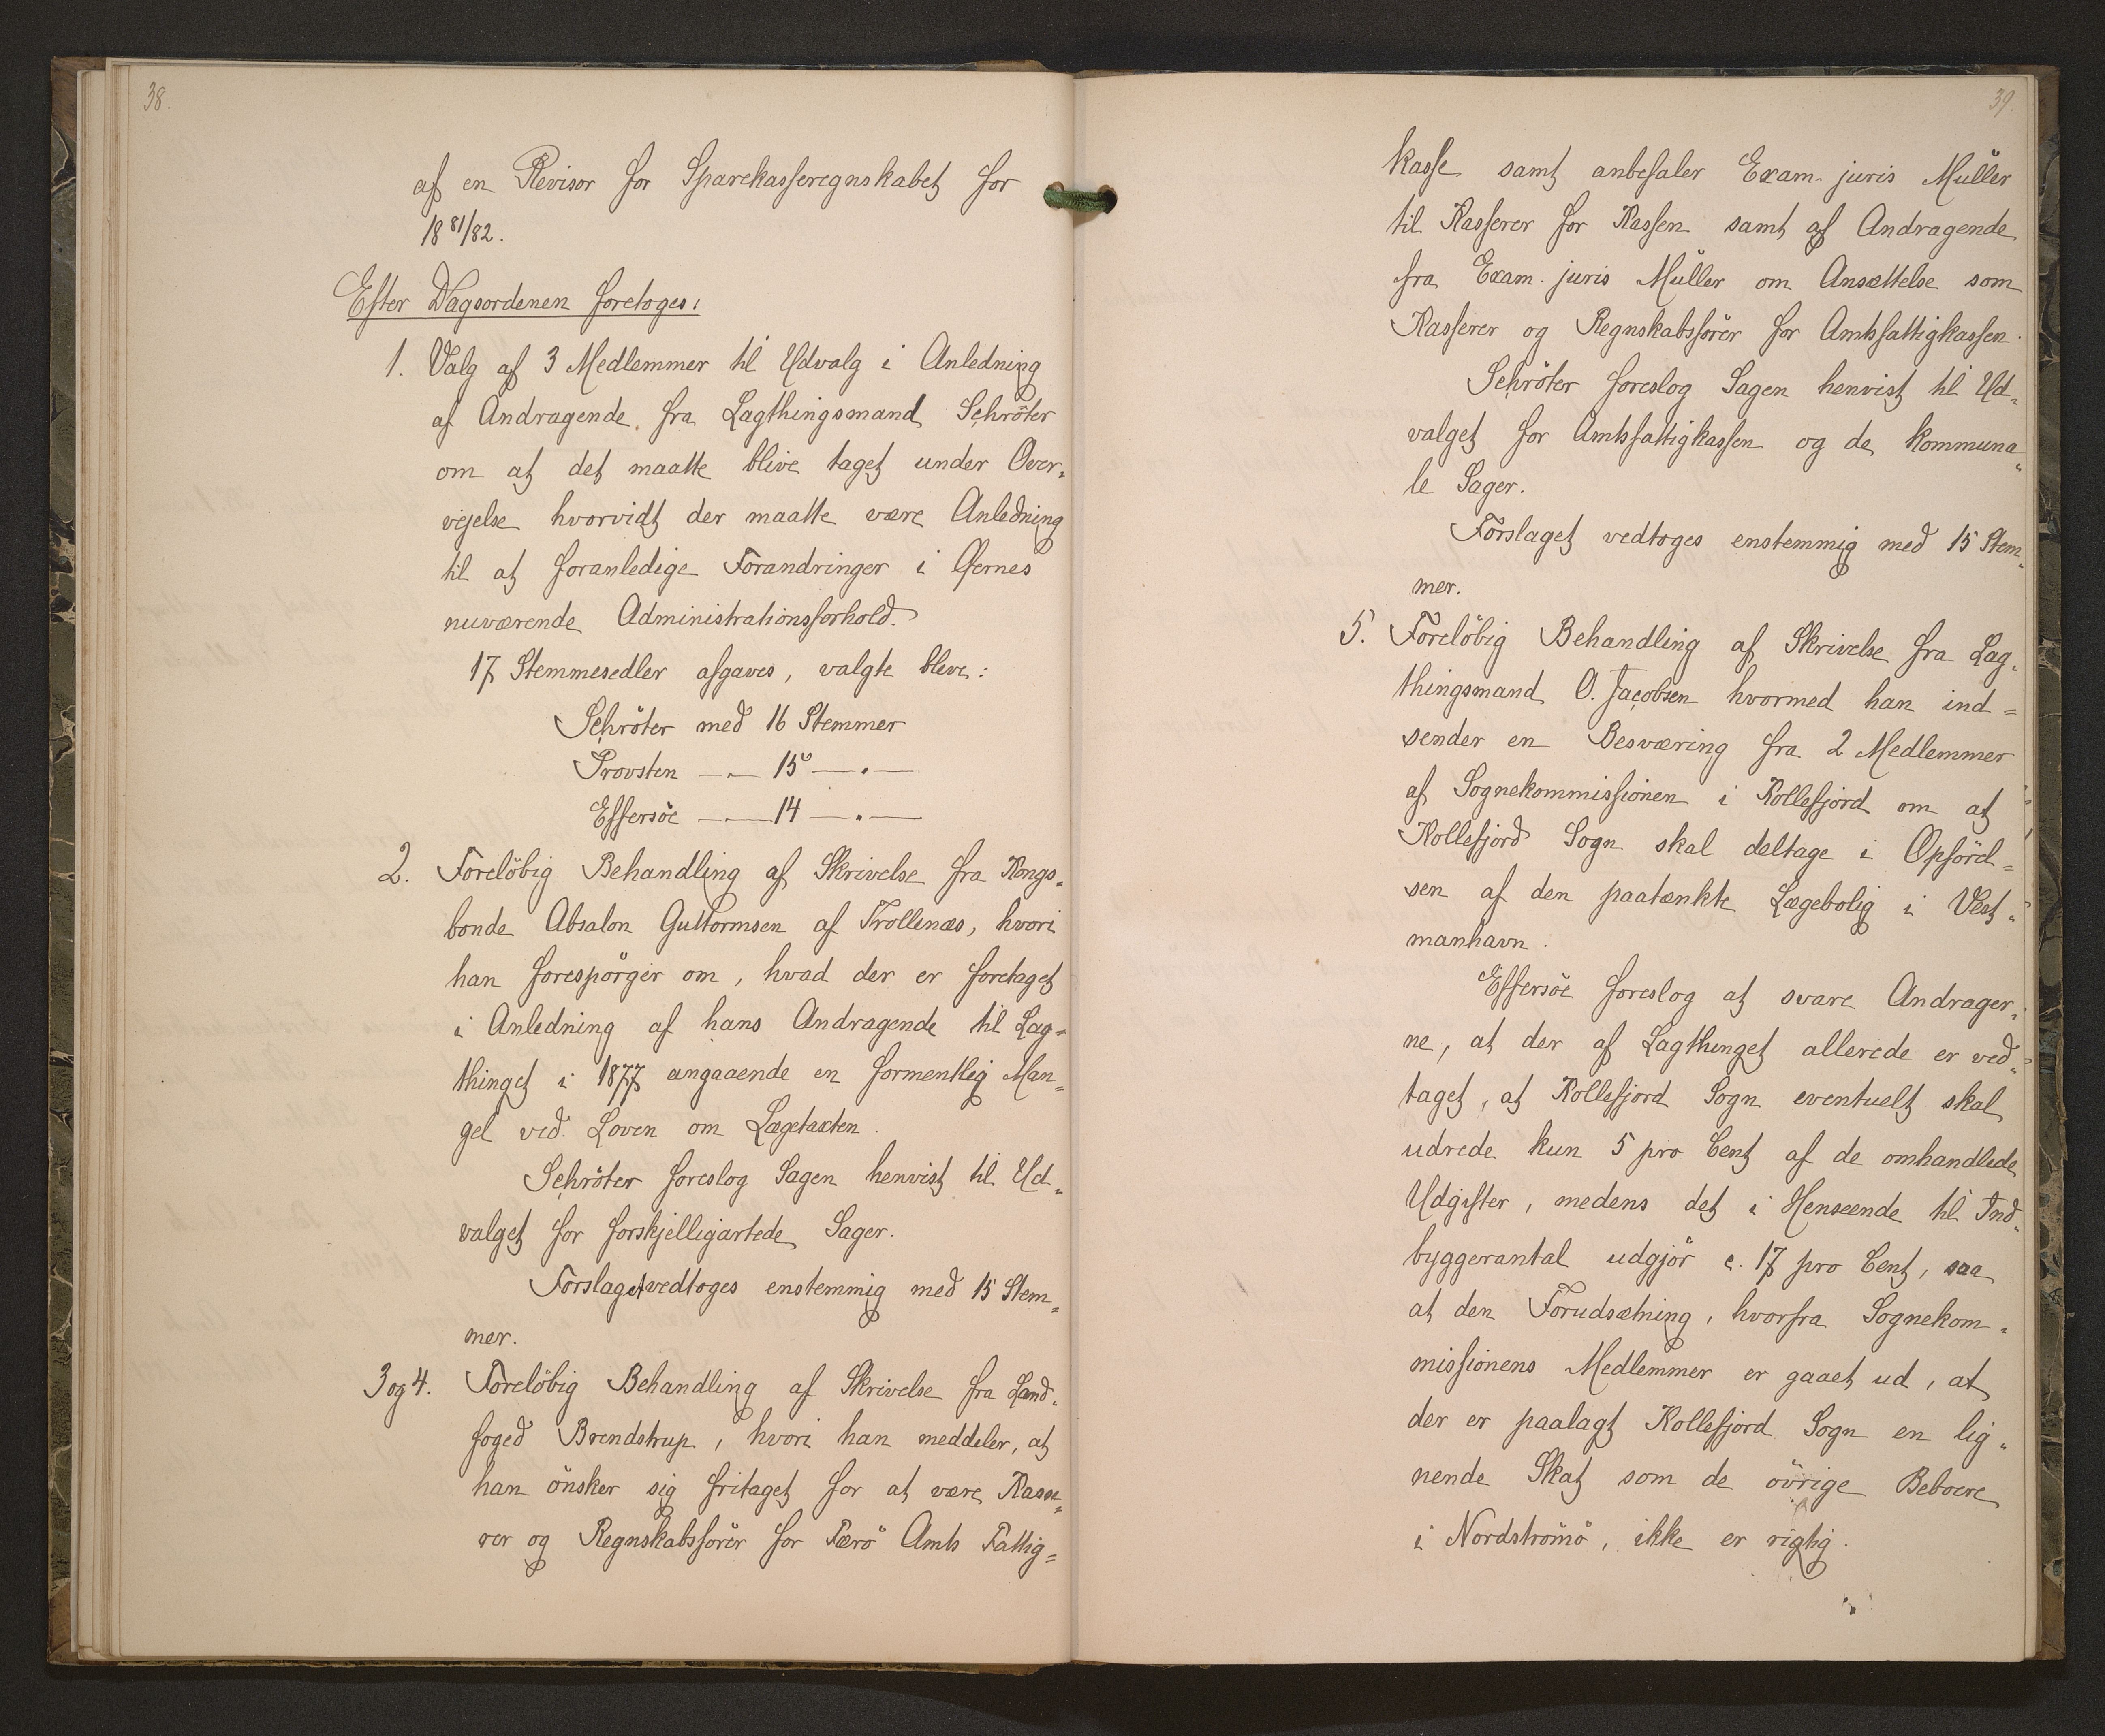 38.
af en Revisor for Sparekasseregnskabet for
18 81/82.
Efter Dagsordenen foretoges:
1. Valg af 3 Medlemmer til Udvalg i Anledning
af Andragende fra Lagthingsmand Schröter
om at det maatte blive taget under Over-
vejelse hvorvidt der maatte være Anledning
til at foranledige Forandringer i Øernes
nuværende Administrationsforhold.
17 Stemmesedler afgaves, valgte bleve:
Schröter med 16 Stemmer
Provsten —„— 15 —„—
Effersöe —„— 14 —„—
2. Forelöbig Behandling af Skrivelse fra Kongs-
bonde Absalon Guttormsen af Trollenæs, hvori
han forespörger om, hvad der er foretaget
i Anledning af hans Andragende til Lag=
thinget i 1877 angaaende en formentlig Man-
gel ved Loven om Lægetaxten.
Schröter foreslog Sagen henvist til Ud-
valget for forskjelligartede Sager.
Forslaget vedtoges enstemmig med 15 Stem-
mer.
3 og 4. Forelöbig Behandling af Skrivelse fra Land-
foged Brendstrup, hvori han meddeler, at
han önsker sig fritaget for at være Kasse-
rer og Regnskabsförer for Færö Amts Fattig=
39.
kasse samt anbefaler Exam. juris Müller
til Kasserer for Kassen samt af Andragende
fra Exam. juris Müller om Ansættelse som
Kasserer og Regnskabsförer for Amtsfattigkassen.
Schröter foreslog Sagen henvist til Ud-
valget for Amtsfattigkassen og de kommuna-
le Sager.
Forslaget vedtoges enstemmig med 15 Stem-
mer.
5. Forelöbig Behandling af Skrivelse fra Lag-
thingsmand O. Jacobsen hvormed han ind=
sender en Besværing fra 2 Medlemmer
af Sognekommissionen i Kollefjord om at
Kollefjord Sogn skal deltage i Opförel=
sen af den paatænkte Lægebolig i Vest-
manhavn.
Effersöe foreslog at svare Andrager-
ne, at der af Lagthinget allerede er ved-
taget, at Kollefjord Sogn eventuelt skal
udrede kun 5 pro Cent af de omhandlede
Udgifter, medens det i Henseende til Ind-
byggerantal udgjör c. 17 pro Cent, saa
at den Forudsætning, hvorfra Sognekom-
missionens Medlemmer er gaaet ud, at
der er paalagt Kollefjord Sogn en lig-
nende Skat som de övrige Beboere
i Nordströmö, ikke er rigtig.